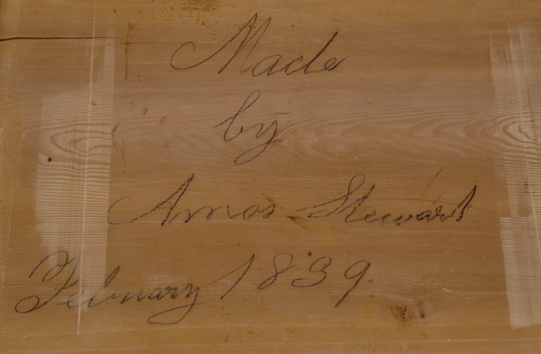 Made
by
Amos Stewart
February 1839.